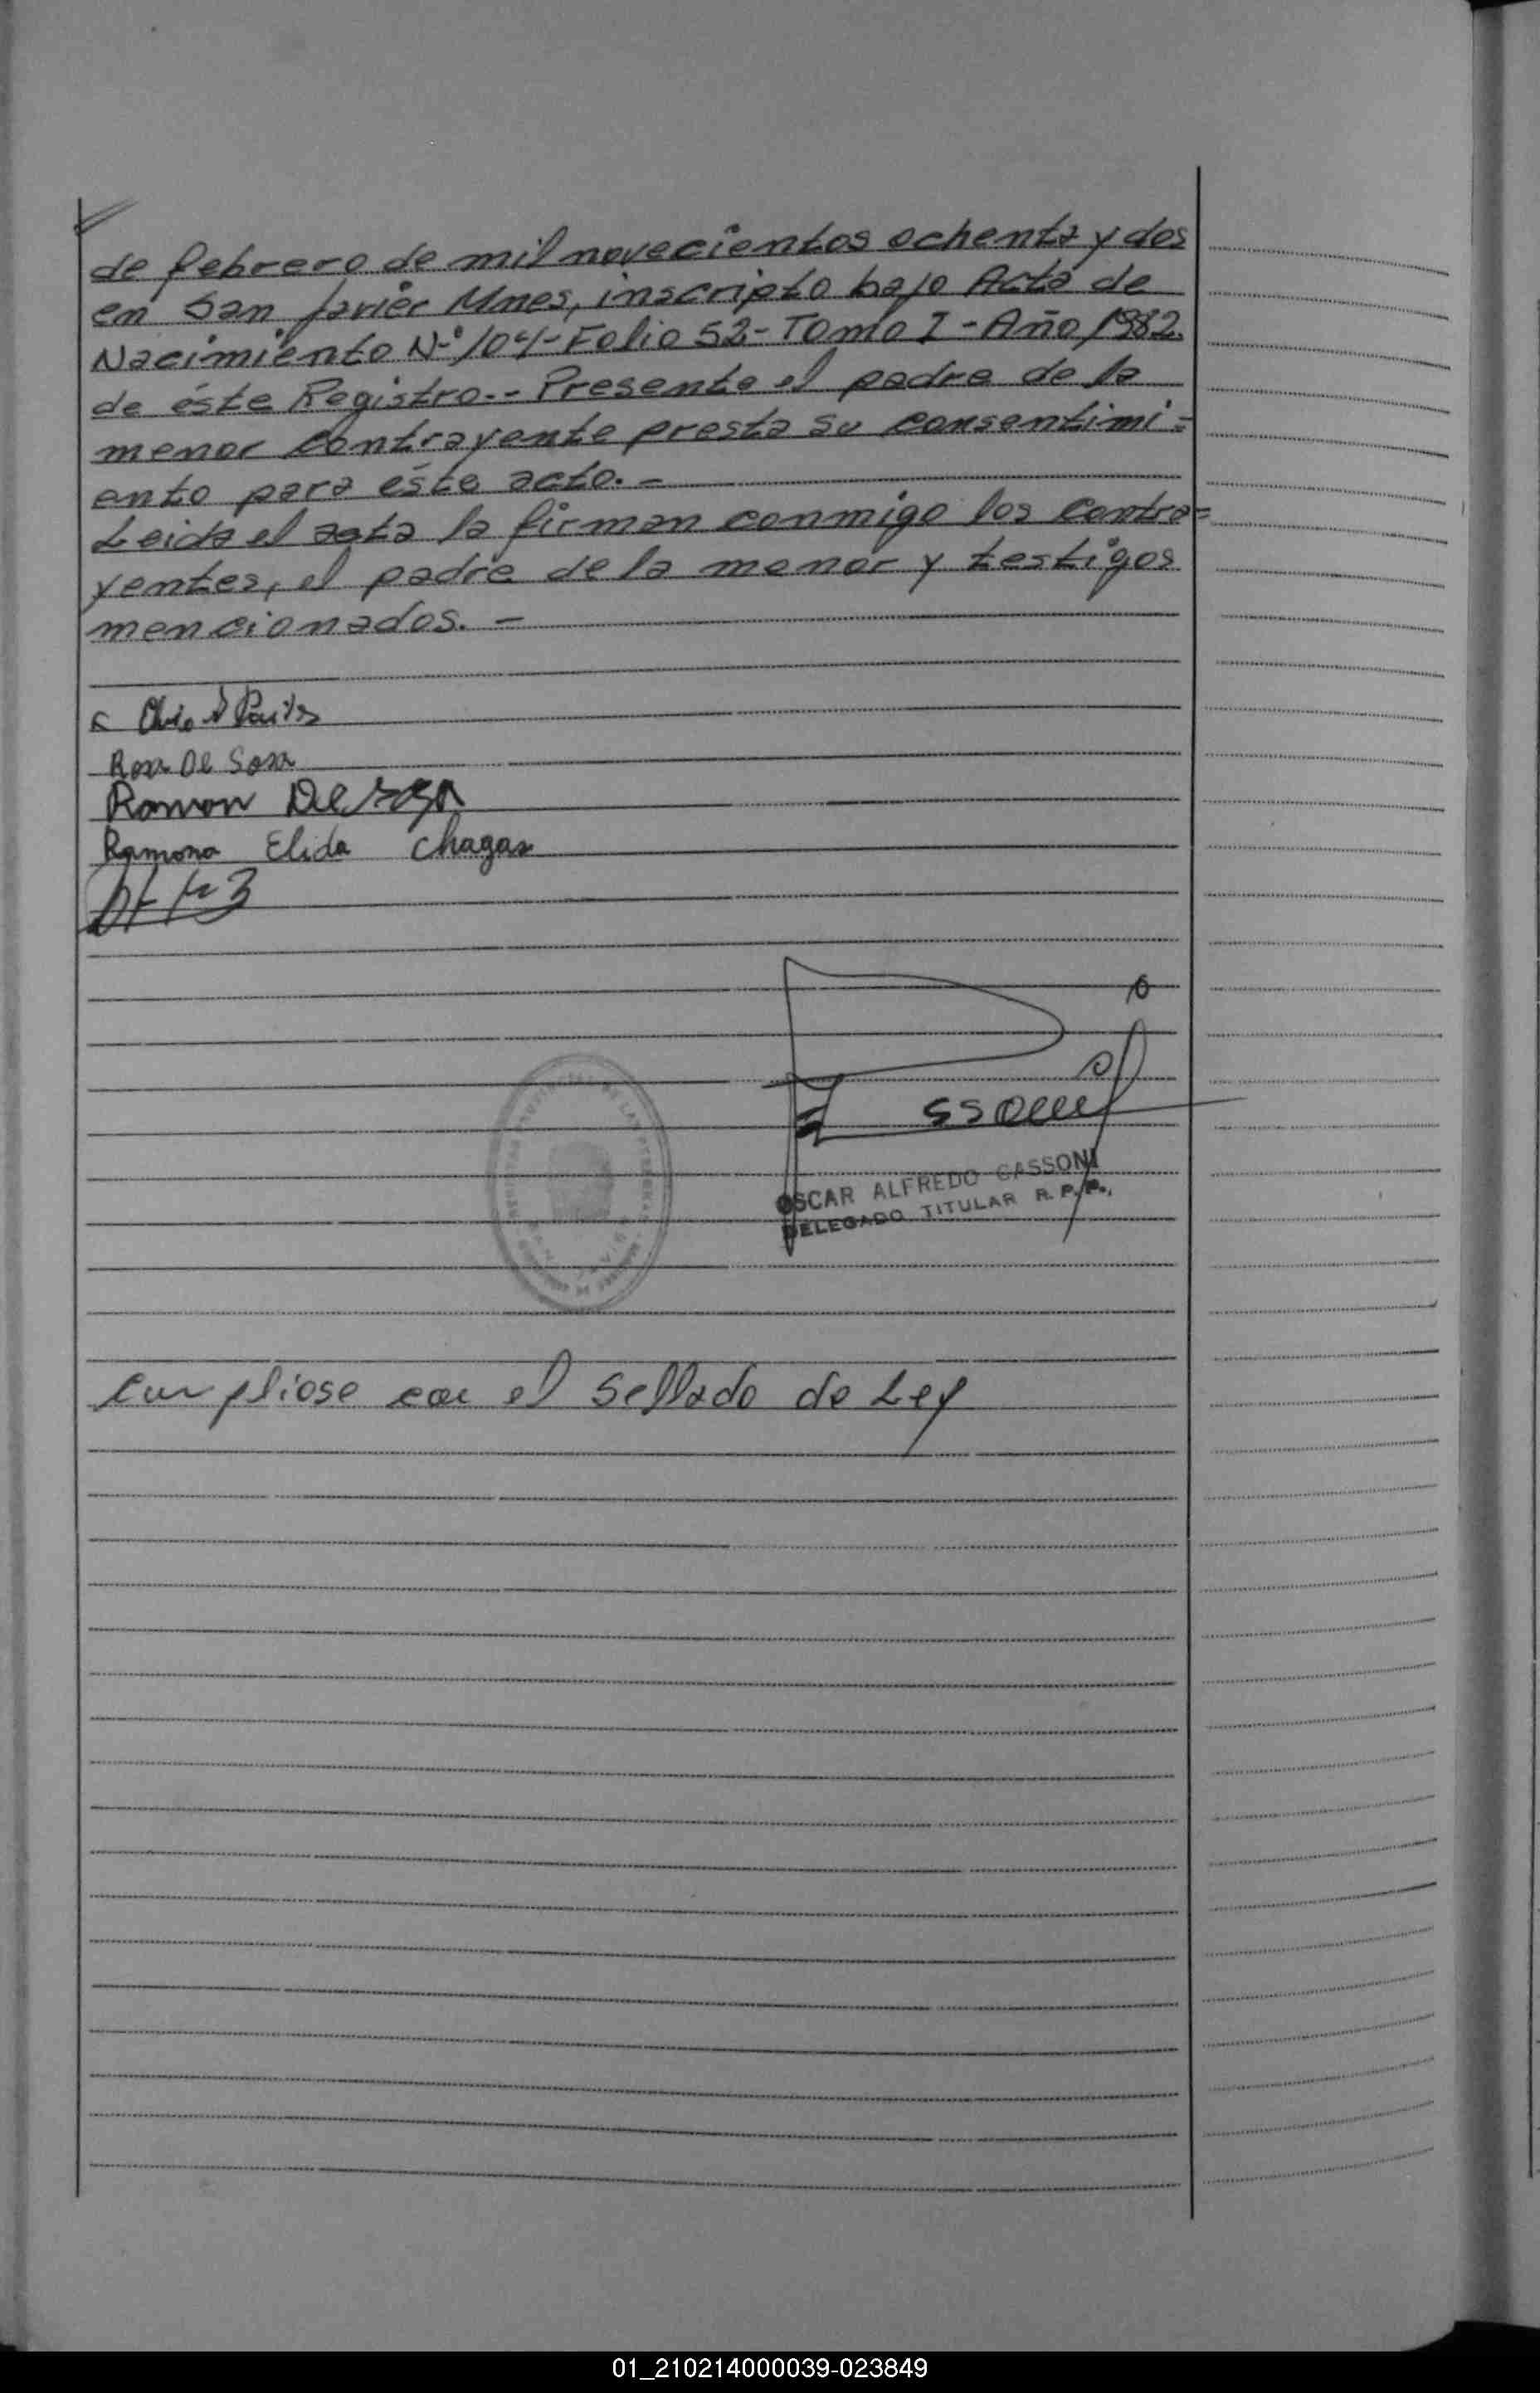 de febrero de mil novecientos ochenta y dos
en San Javier Mnes, inscripto bajo Acta de
Nacimiento N° 104-Folio 52-Tomo I-Año 1982
de éste Registro.- Presente el padre de la
menor contrayente presta su consentimi=
ento para éste acto.-
Leida el acta la firman conmigo los contra=
yentes, el padre de la menor y testigos
mencionados.-
Rosa De Sosa
Ramon De sosa
Ramona Elida Chagas
OSCAR ALFREDO CASSONI
DELEGADO TITULAR R. P. P.,
Cumpliose con el Sellado de Ley
01_210214000039-023849